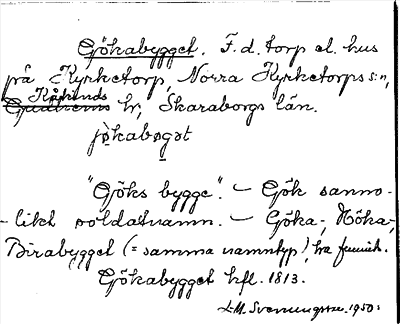 Gökabygget. F. d. torp el. hus
på Kyrketorp, Norra Kyrketorps s:n,
Kåkinds
Gudhems hr, Skaraborgs län.
jø̀kabøgət
"Göks bygge". – Gök sanno-
likt soldatnamn. – Göka-, Höka-,
Birabygget (= samma namntyp) ha funnits.
Gökabygget kfl. 1813.
L.M. Svenungsson. 1950.